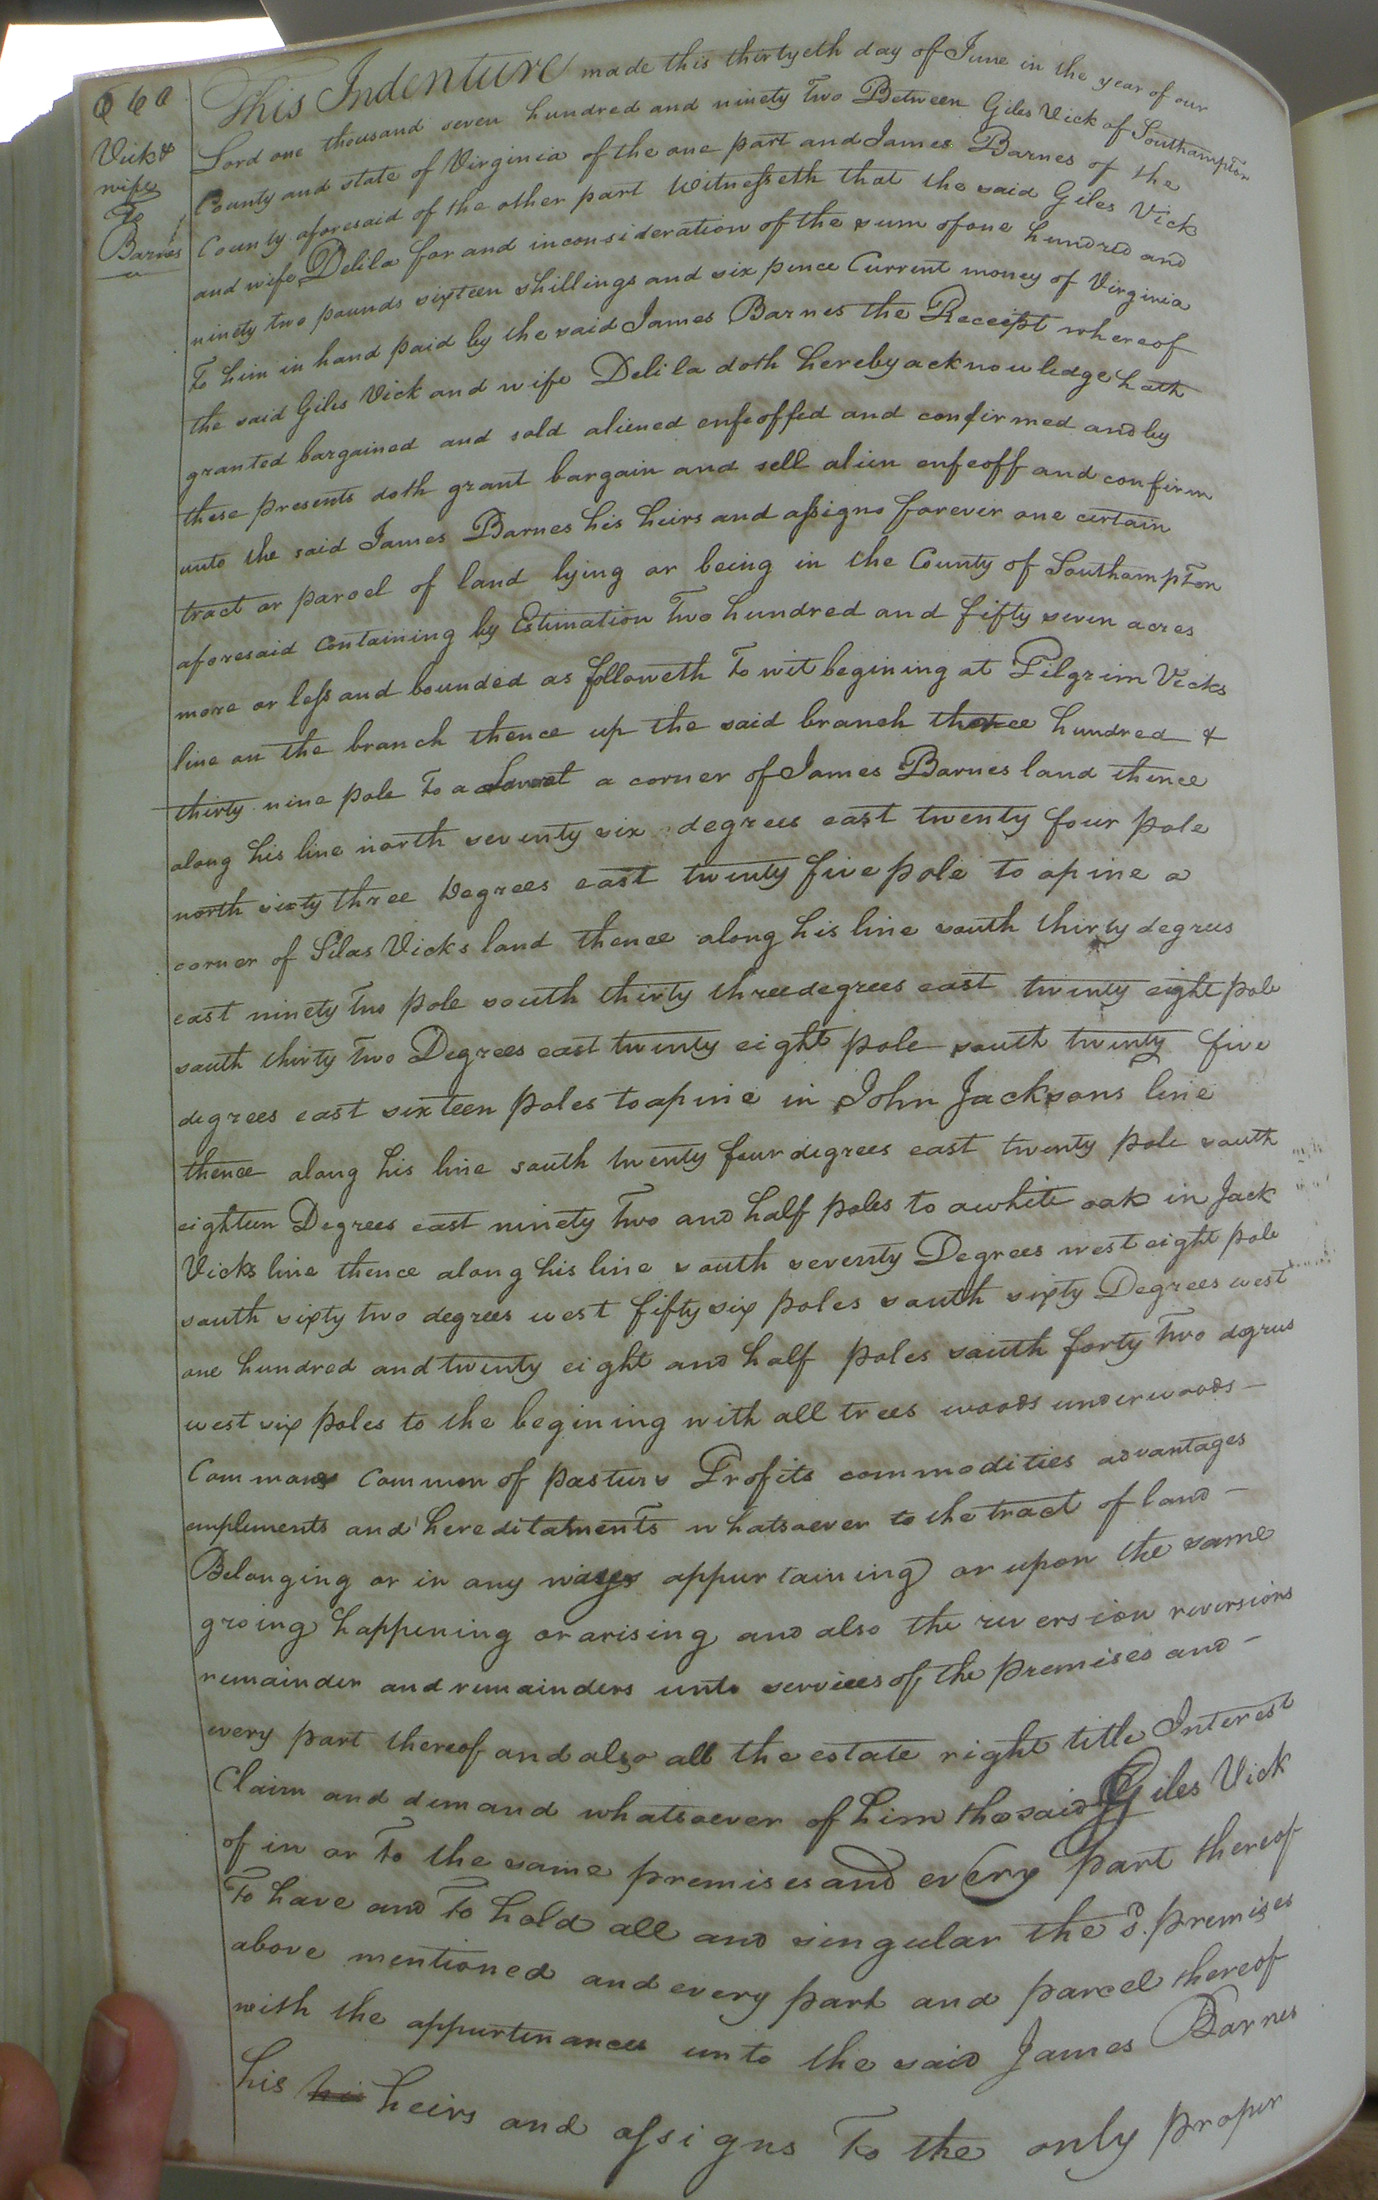 660
Vick &
wife
To
Barnes
This Indenture made this thirtyeth day of June in the year of our
Lord one thousand seven hundred and ninety Two Between Giles Vick of Southampton
County and state of Virginia of the one part and James Barnes of the
County aforesaid of the other part Witnesseth that the said Giles Vick
and wife Delila for and inconsideration of the sum of one hundred and
ninety two pounds sixteen shillings and six pence Current money of Virginia
To him in hand paid by the said James Barnes the Receipt whereof
the said Giles Vick and wife Delila doth hereby acknowledge hath
granted bargained and sold aliened enfeoffed and confirmed and by
these presents doth grant bargain and sell alien enfeoff and confirm
unto the said James Barnes his heirs and assigns forever one certain
tract or parcel of land lying or being in the County of Southampton
aforesaid Containing by Estimation Two hundred and fifty seven acres
more or less and bounded as followeth To wit begining at Pilgrim Vicks
line on the branch thence up the said branch three hundred &
thirty nine pole To a a corner of James Barnes land thence
along his line north seventy six degrees east twenty four pole
north sixty three Degrees east twenty five pole to a pine a
corner of Silas Vicks land thence along his line south thirty degrees
east ninety Two pole south thirty three degrees east twenty eight pole
south thirty Two Degrees east twenty eight pole south twenty five
degrees east sixteen poles to a pine in John Jacksons line
thence along his line south twenty four degrees east twenty pole south
eighteen Degrees east ninety Two and half poles to a white oak in Jack
Vicks line thence along his line south seventy Degrees west eight pole
south sixty two degrees west fifty six poles south sixty Degrees west
one hundred and twenty eight and half poles south forty Two degrees
west six poles to the begining with all trees woods underwoods —
Commons common of pasturs Profits commodities advantages
empluments and hereditatments whatsoever to the tract of land —
Belonging or in any ways appurtaining or upon the same
groing happening or arising and also the reversion reversions
remainder and remainders unto services of the premises and —
every part thereof and also all the estate right title Interest
Claim and demand whatsoever of him the said Giles Vick
of in or To the same premises and every part thereof
To have and To hold all and singular the sd. premises
above mentioned and every part and parcel thereof
with the appurtenances unto the said James Barnes
his hi heirs and assigns To the only proper